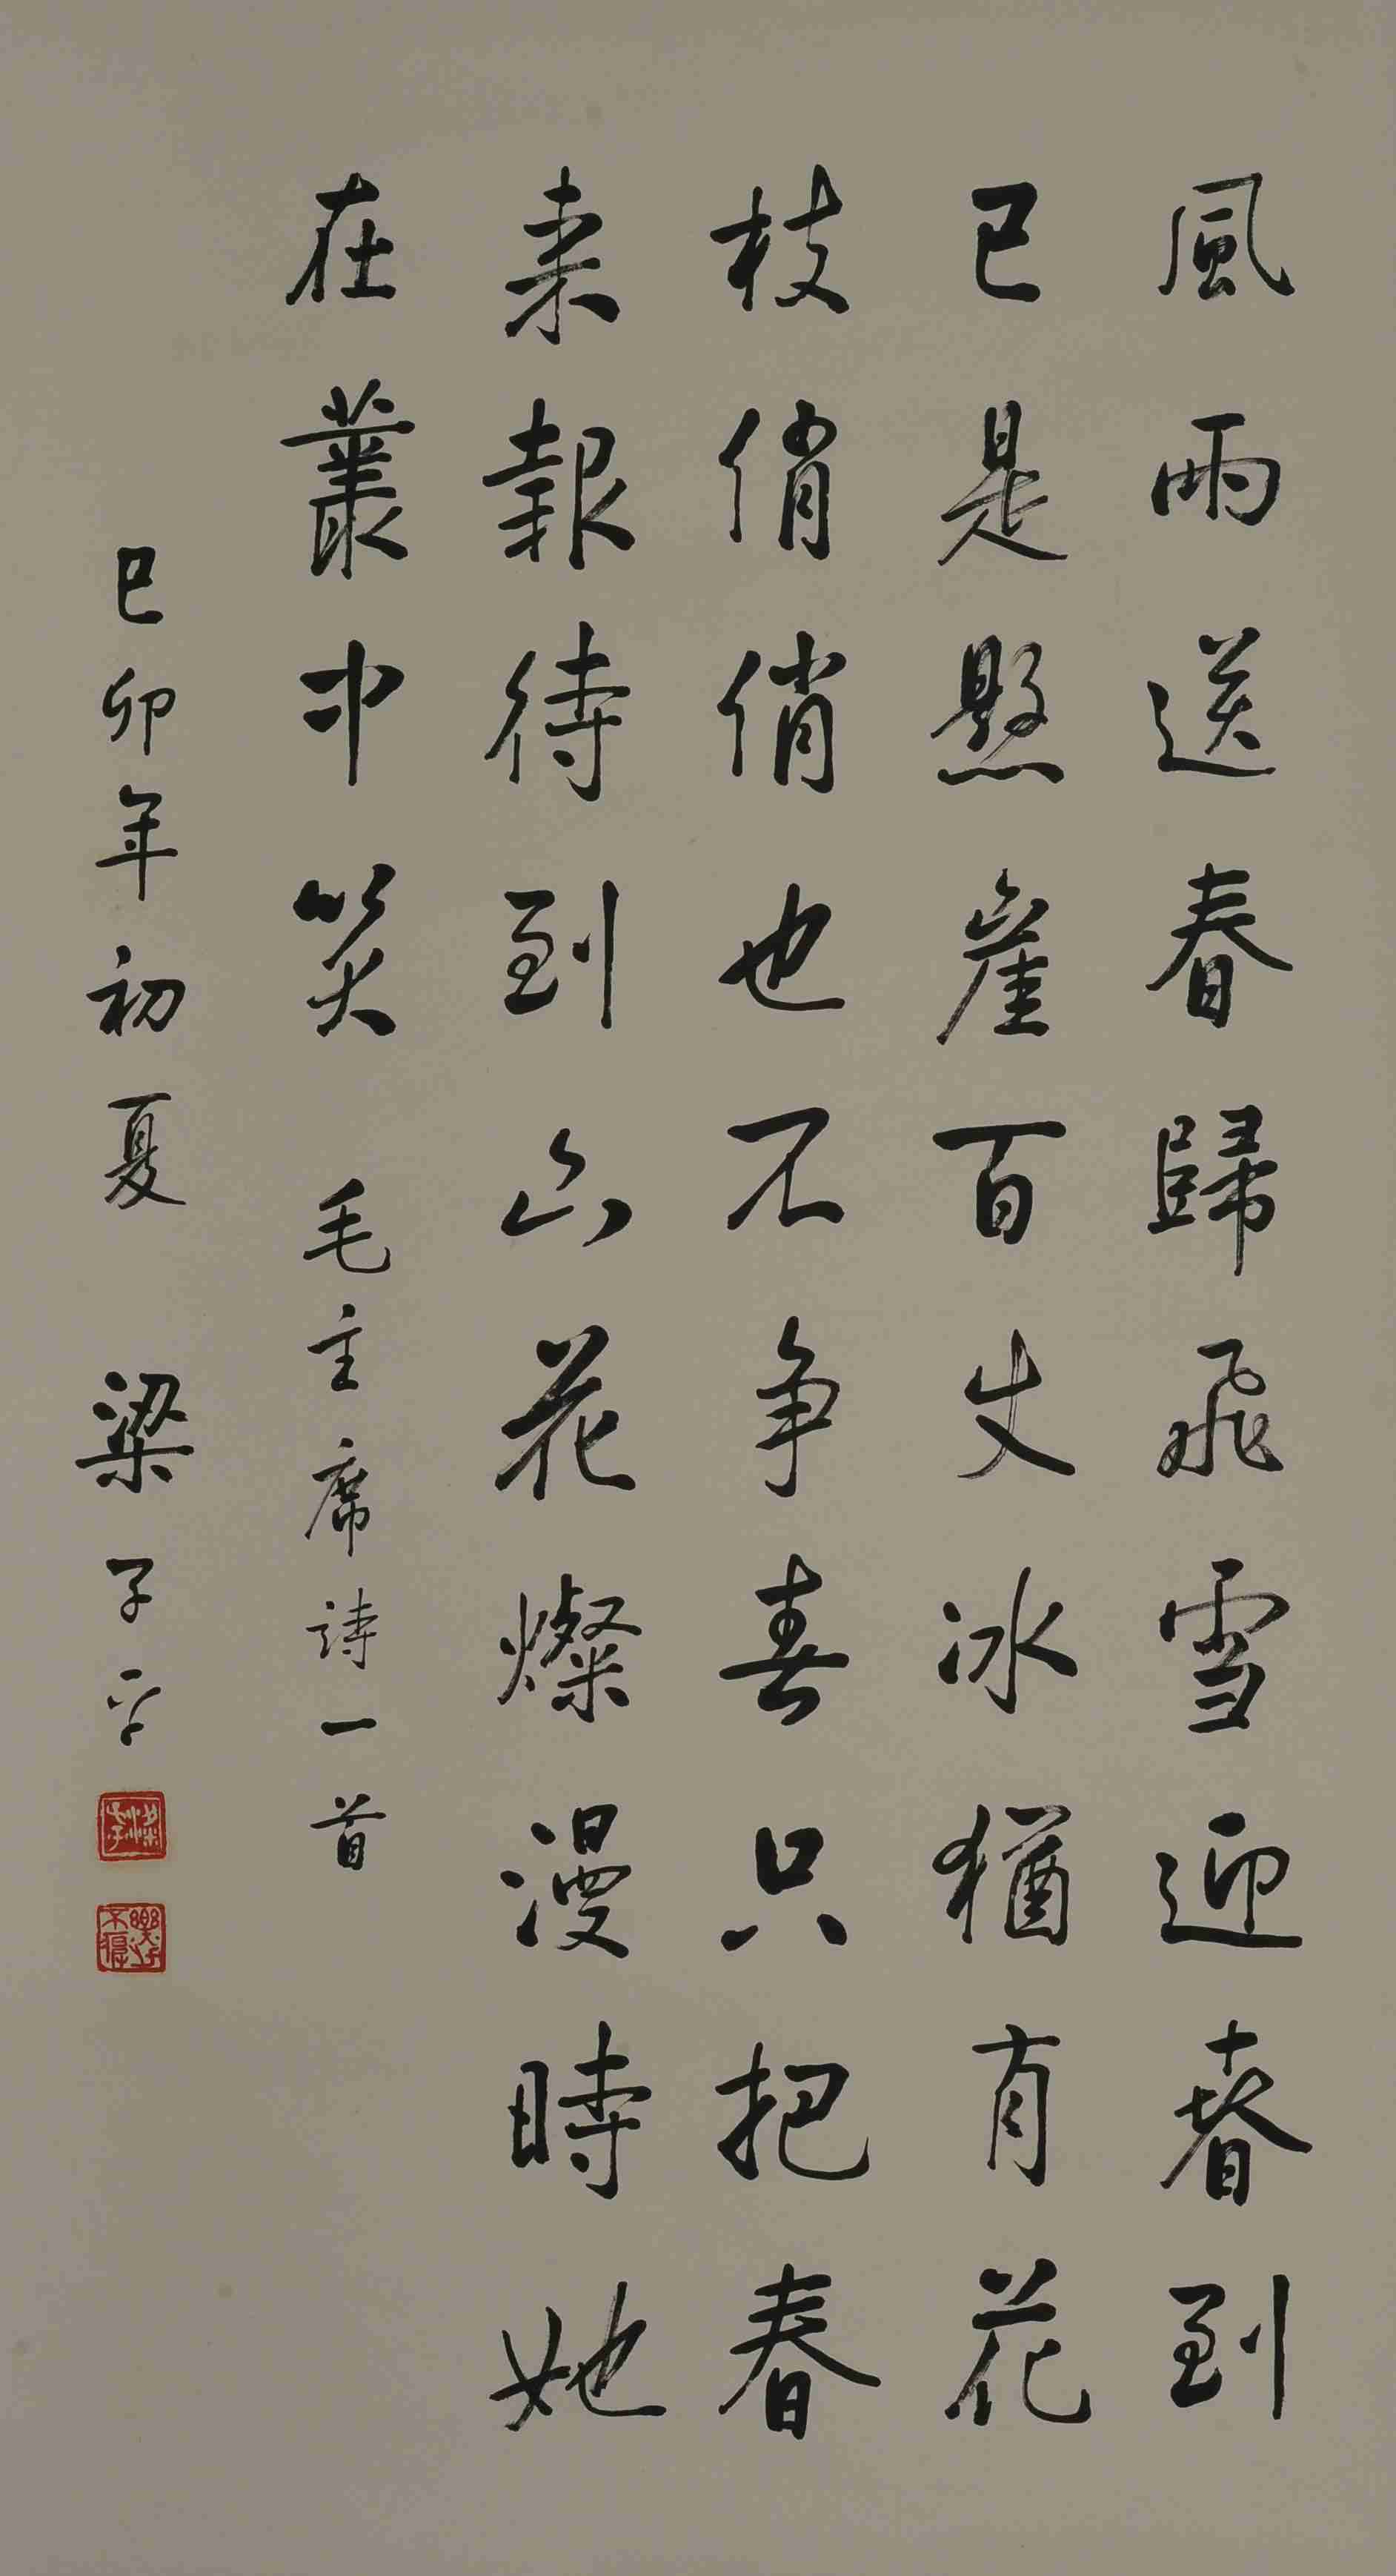 風雨送春歸飛雪迎春到
已是懸崖百丈冰猶有花
枝俏俏也不争春只把春
来報待到山花燦漫時她
在叢中笑 毛主席詩一首
己卯年初夏 梁子平